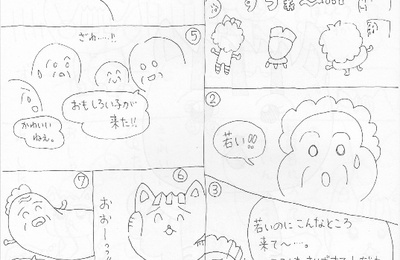 ②
若い!!
③
若いのにこんなところ
来て〜…。
⑤
ざわ……!!
おもしろい子が
来た!!
かわいい
ねぇ。
⑥
おおー
⑦